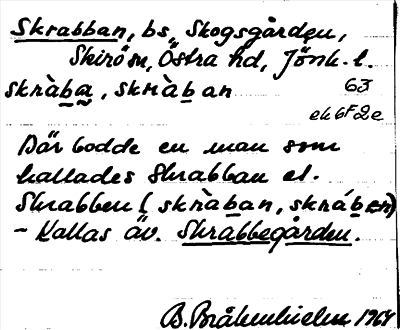 Skrabban, bs, Skogsgården,
Skirö sn, Östra hd, Jönk. l.
skràba, skràban 63
ek 6F2e
Där bodde en man som
kallades Skrabban el.
Skrabben (skràban, skráben)
- Kallas äv. Skrabbegården.
1964